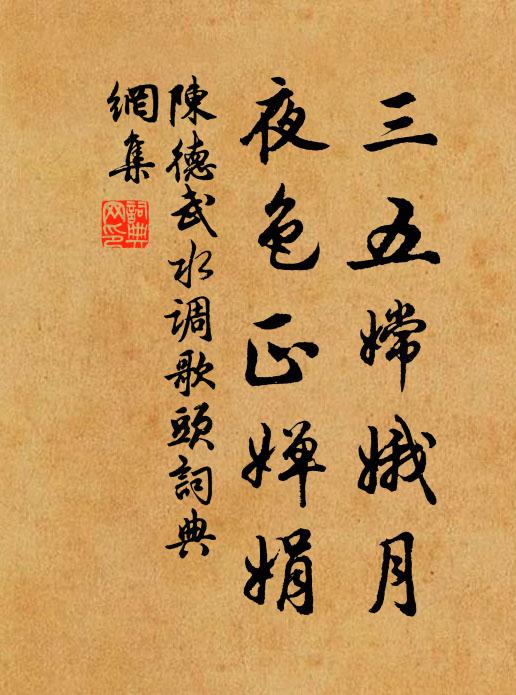 三五嫦娥月
夜色正嬋娟
陳德武水调歌頭詞典
網集
詞典
网印